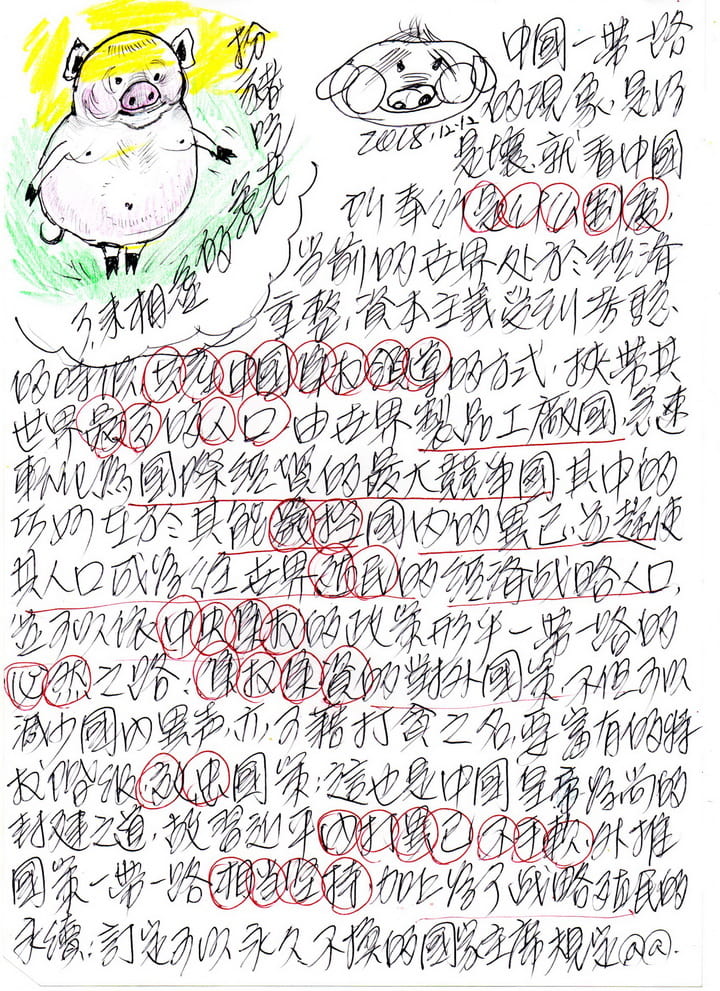 扮豬吃老虎的
真相在
2018.12.12
中國一帶一路
的現象,是好
是壞,就看中國
到奉行是什么制度,
當前的世界处於經濟
主整,資本主義受到考驗
的時候,共產中國集权領導的方式,挾帶其
世界最多的人口,由世界製品工廠國,急速
轉化為國際經貿的最大競争國,其中的
巧妙在於其能嚴控國內的異己,並趨使
其人口成為往世界殖民的經濟战略人口,
並可以依中央集权的政策形半一帶一路的
必然之路;集权集資的對外國策,不但可以
減少國內異声,亦可藉打貪之名,要富有的特
权階级,支出國策;這也是中國皇帝崇尚的
封建之道,故習近平內打異己不手軟,外推
國策一帶一路相当堅持,加上為了战略殖民的
永續;訂定可以永久不換的國家主席規定@@.